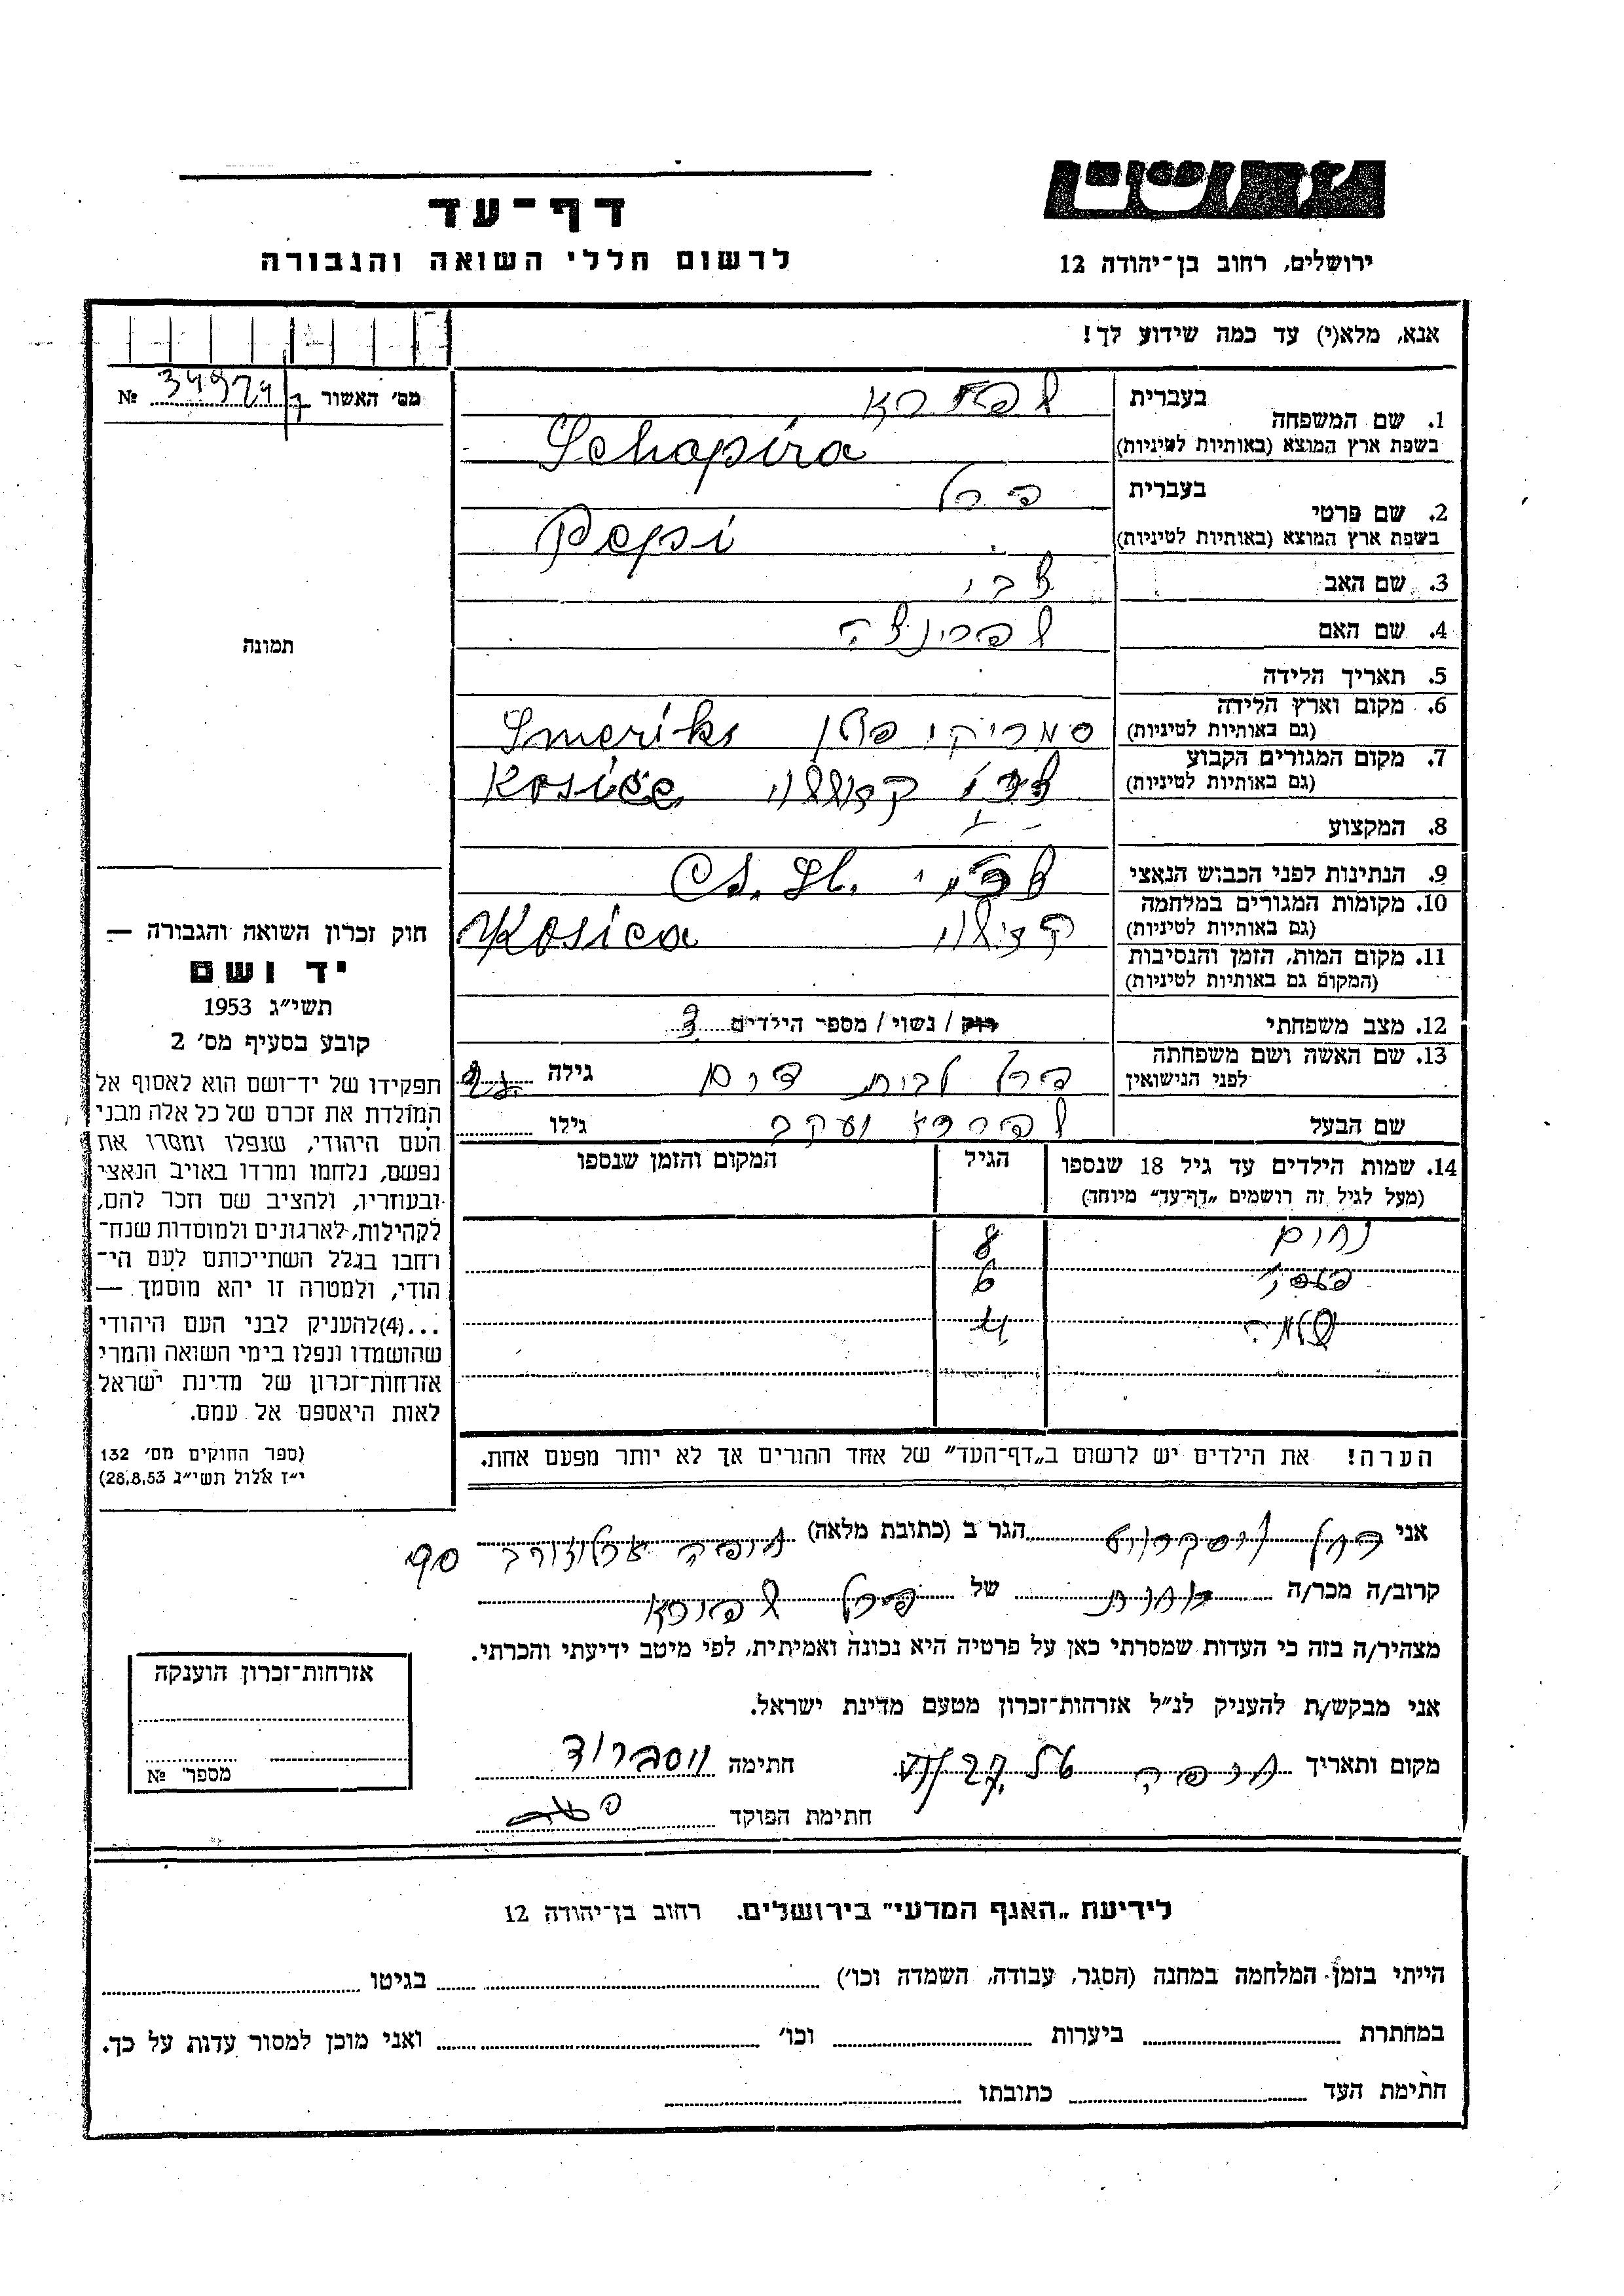 יד ושם
דף-עד
ירושלים, רחוב בן-יהודה 12
לרשום חללי השואה והגבורה
אנא, מלא(י) עד כמה שידוע לך!
מס' האשור № 34924
1. שם המשפחה בעברית שפירא
בשפת ארץ המוצא (באותיות לטיניות) Schapira
2. שם פרטי בעברית פרל
בשפת ארץ המוצא (באותיות לטיניות) Pepi
3. שם האב צבי
4. שם האם שפרינצה
5. תאריך הלידה
6. מקום וארץ הלידה (גם באותיות לטיניות) סמריקי Smeriki
7. מקום המגורים הקבוע (גם באותיות לטיניות) Kosice
8. המקצוע
9. הנתינות לפני הכבוש הנאצי Čs. St.
10. מקומות המגורים במלחמה (גם באותיות לטיניות) Kosica
11. מקום המות, הזמן והנסיבות (המקום גם באותיות לטיניות)
12. מצב משפחתי רוק / נשוי / מספר הילדים 3
13. שם האשה ושם משפחתה לפני הנישואין פרל לבית גילה
שם הבעל שפירא יעקב גילו
14. שמות הילדים עד גיל 18 שנספו הגיל המקום והזמן שנספו
(מעל לגיל זה רושמים „דף-עד" מיוחד)
נחום 8
6
שלמה 4
הערה! את הילדים יש לרשום ב„דף-העד" של אחד ההורים אך לא יותר מפעם אחת.
תמונה
חוק זכרון השואה והגבורה —
יד ושם
תשי"ג 1953
קובע בסעיף מס' 2
תפקידו של יד-ושם הוא לאסוף אל
המולדת את זכרם של כל אלה מבני
העם היהודי, שנפלו ומסרו את
נפשם, נלחמו ומרדו באויב הנאצי
ובעוזריו, ולהציב שם וזכר להם,
לקהילות, לארגונים ולמוסדות שנח-
רחבו בגלל השתייכותם לעם הי-
הודי, ולמטרה זו יהא מוסמך —
...(4)להעניק לבני העם היהודי
שהושמדו ונפלו בימי השואה והמרי
אזרחות-זכרון של מדינת ישראל
לאות היאספם אל עמם.
(ספר החוקים מס' 132
י"ז אלול תשי"ג 28.8.53)
אני הגר ב (כתובת מלאה) חיפה
קרוב/ה מכר/ה אחות של פרל שפירא
מצהיר/ה בזה כי העדות שמסרתי כאן על פרטיה היא נכונה ואמיתית, לפי מיטב ידיעתי והכרתי.
אני מבקש/ת להעניק לנ"ל אזרחות-זכרון מטעם מדינת ישראל.
מקום ותאריך חיפה חתימה
חתימת הפוקד
אזרחות-זכרון הוענקה
מספר' №
לידיעת „האגף המדעי" בירושלים. רחוב בן-יהודה 12
הייתי בזמן המלחמה במחנה (הסגר, עבודה, השמדה וכו') בגיטו
במחתרת ביערות וכו' ואני מוכן למסור עדות על כך.
חתימת העד כתובתו